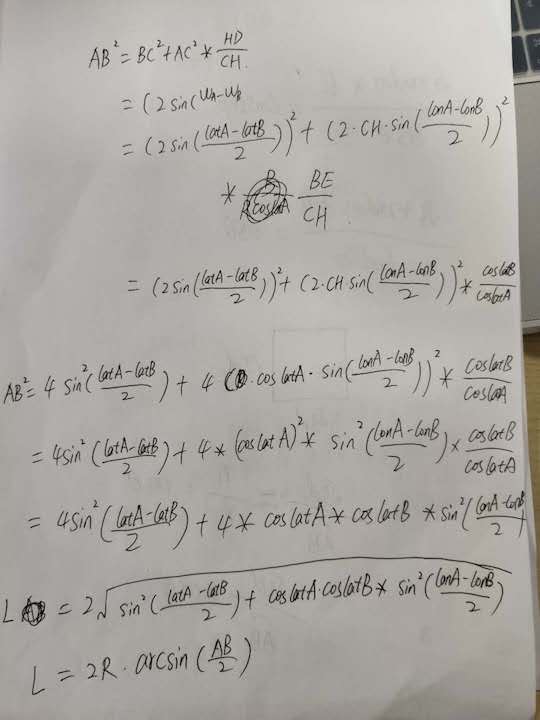 AB² = BC² + AC² * HD/CH
= (2 sin(
= (2 sin((latA-latB)/2))² + (2·CH·sin((lonA-lonB)/2))²
* BE/CH
= (2 sin((latA-latB)/2))² + (2·CH·sin((lonA-lonB)/2))² * coslatB/coslatA
AB² = 4 sin²((latA-latB)/2) + 4 ( · coslatA · sin((lonA-lonB)/2))² * coslatB/coslatA
= 4sin²((latA-latB)/2) + 4 * (coslatA)² * sin²((lonA-lonB)/2) × coslatB/coslatA
= 4sin²((latA-latB)/2) + 4 * coslatA * coslatB * sin²((lonA-lonB)/2
L = 2√(sin²((latA-latB)/2) + coslatA·coslatB * sin²((lonA-lonB)/2))
L = 2R · arcsin(AB/2)